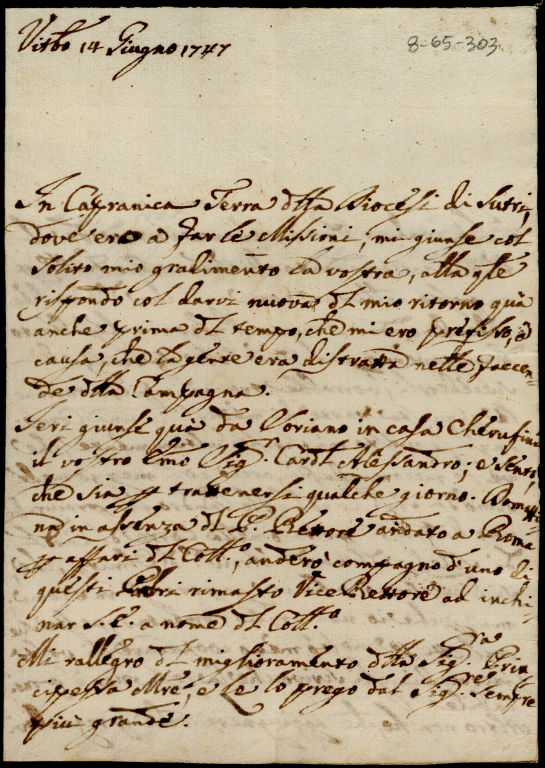 Vitbo 14 Giugno 1747
8-65-303.
In Capranica Terra dlla Diocesi di Sutri,
dove ero a far le Missioni, mi giunse col
solito mio gradimento la vostra, alla qle
rispondo col darvi nuova dl mio ritorno quà
anche prima dl tempo, che mi ero prefisso, à
causa, che la gente era distratta nelle faccen-
de dlla Campagna.
Ieri giunse quà da Soriano in casa Cherufini
il vostro Emo Sigr Cardl Alessandro; e sento,
che sia p trattenersi qualche giorno. Domatti-
na in assenza dl P. Rettore andato a Roma
p affari dl Collo, anderò compagno d'uno di
questi Padri rimasto Vice Rettore ad inchi-
nar S. E. a nome dl Collo.
Mi rallegro dl miglioramento dlla Sigra Prin-
cipessa Mre, e Le lo prego dal Sigre sempre
più grande.